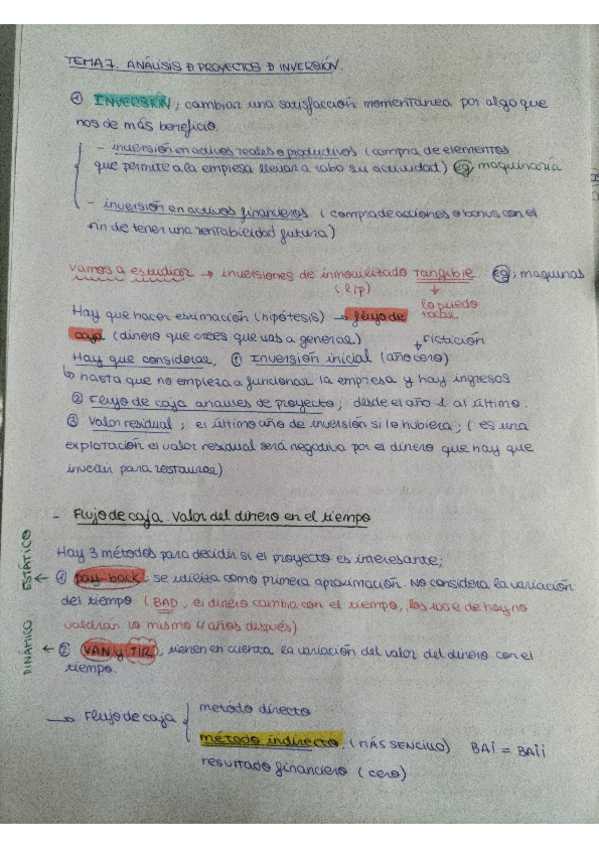 TEMA 7. ANÁLISIS D PROYECTOS D INVERSIÓN.
① INVERSIÓN; cambiar una satisfacción momentanea por algo que
nos de más beneficio.
- inversión en activos reales o productivos (compra de elementos
que permite a la empresa llevar a cabo su actividad) eg; maquinaria
- inversión en activos financieros (compra de acciones o bonus con el
fin de tener una rentabilidad futura)
vamos a estudiar → inversiones de inmovilizado tangible. eg; maquinas
(l/p) ↓
lo puedo
tocar.
Hay que hacer estimación (hipótesis) → flujo de
caja (dinero que crees que vas a generar) ↓ Fictición
Hay que considerar, ① Inversión inicial (año cero)
↳ hasta que no empieza a funcionar la empresa y hay ingresos
② Flujo de caja anuales de proyecto; desde el año 1 al último.
③ Valor residual; el último año de inversión si lo hubiera; (es una
explotación el valor residual será negativo por el dinero que hay que
invertir para restaurar)
- Flujo de caja. Valor del dinero en el tiempo
Hay 3 métodos para decidir si el proyecto es interesante;
ESTÁTICO ← ① pay-back; se utiliza como primera aproximación. No considera la variación
del tiempo (BAD, el dinero cambia con el tiempo, los 100€ de hoy no
valdrán lo mismo 4 años después)
DINÁMICO ← ② VAN y TIR; tienen en cuenta la variación del valor del dinero con el
tiempo.
→ Flujo de caja
método directo
método indirecto. (MÁS SENCILLO) BAi = BAii
resultado financiero (cero)